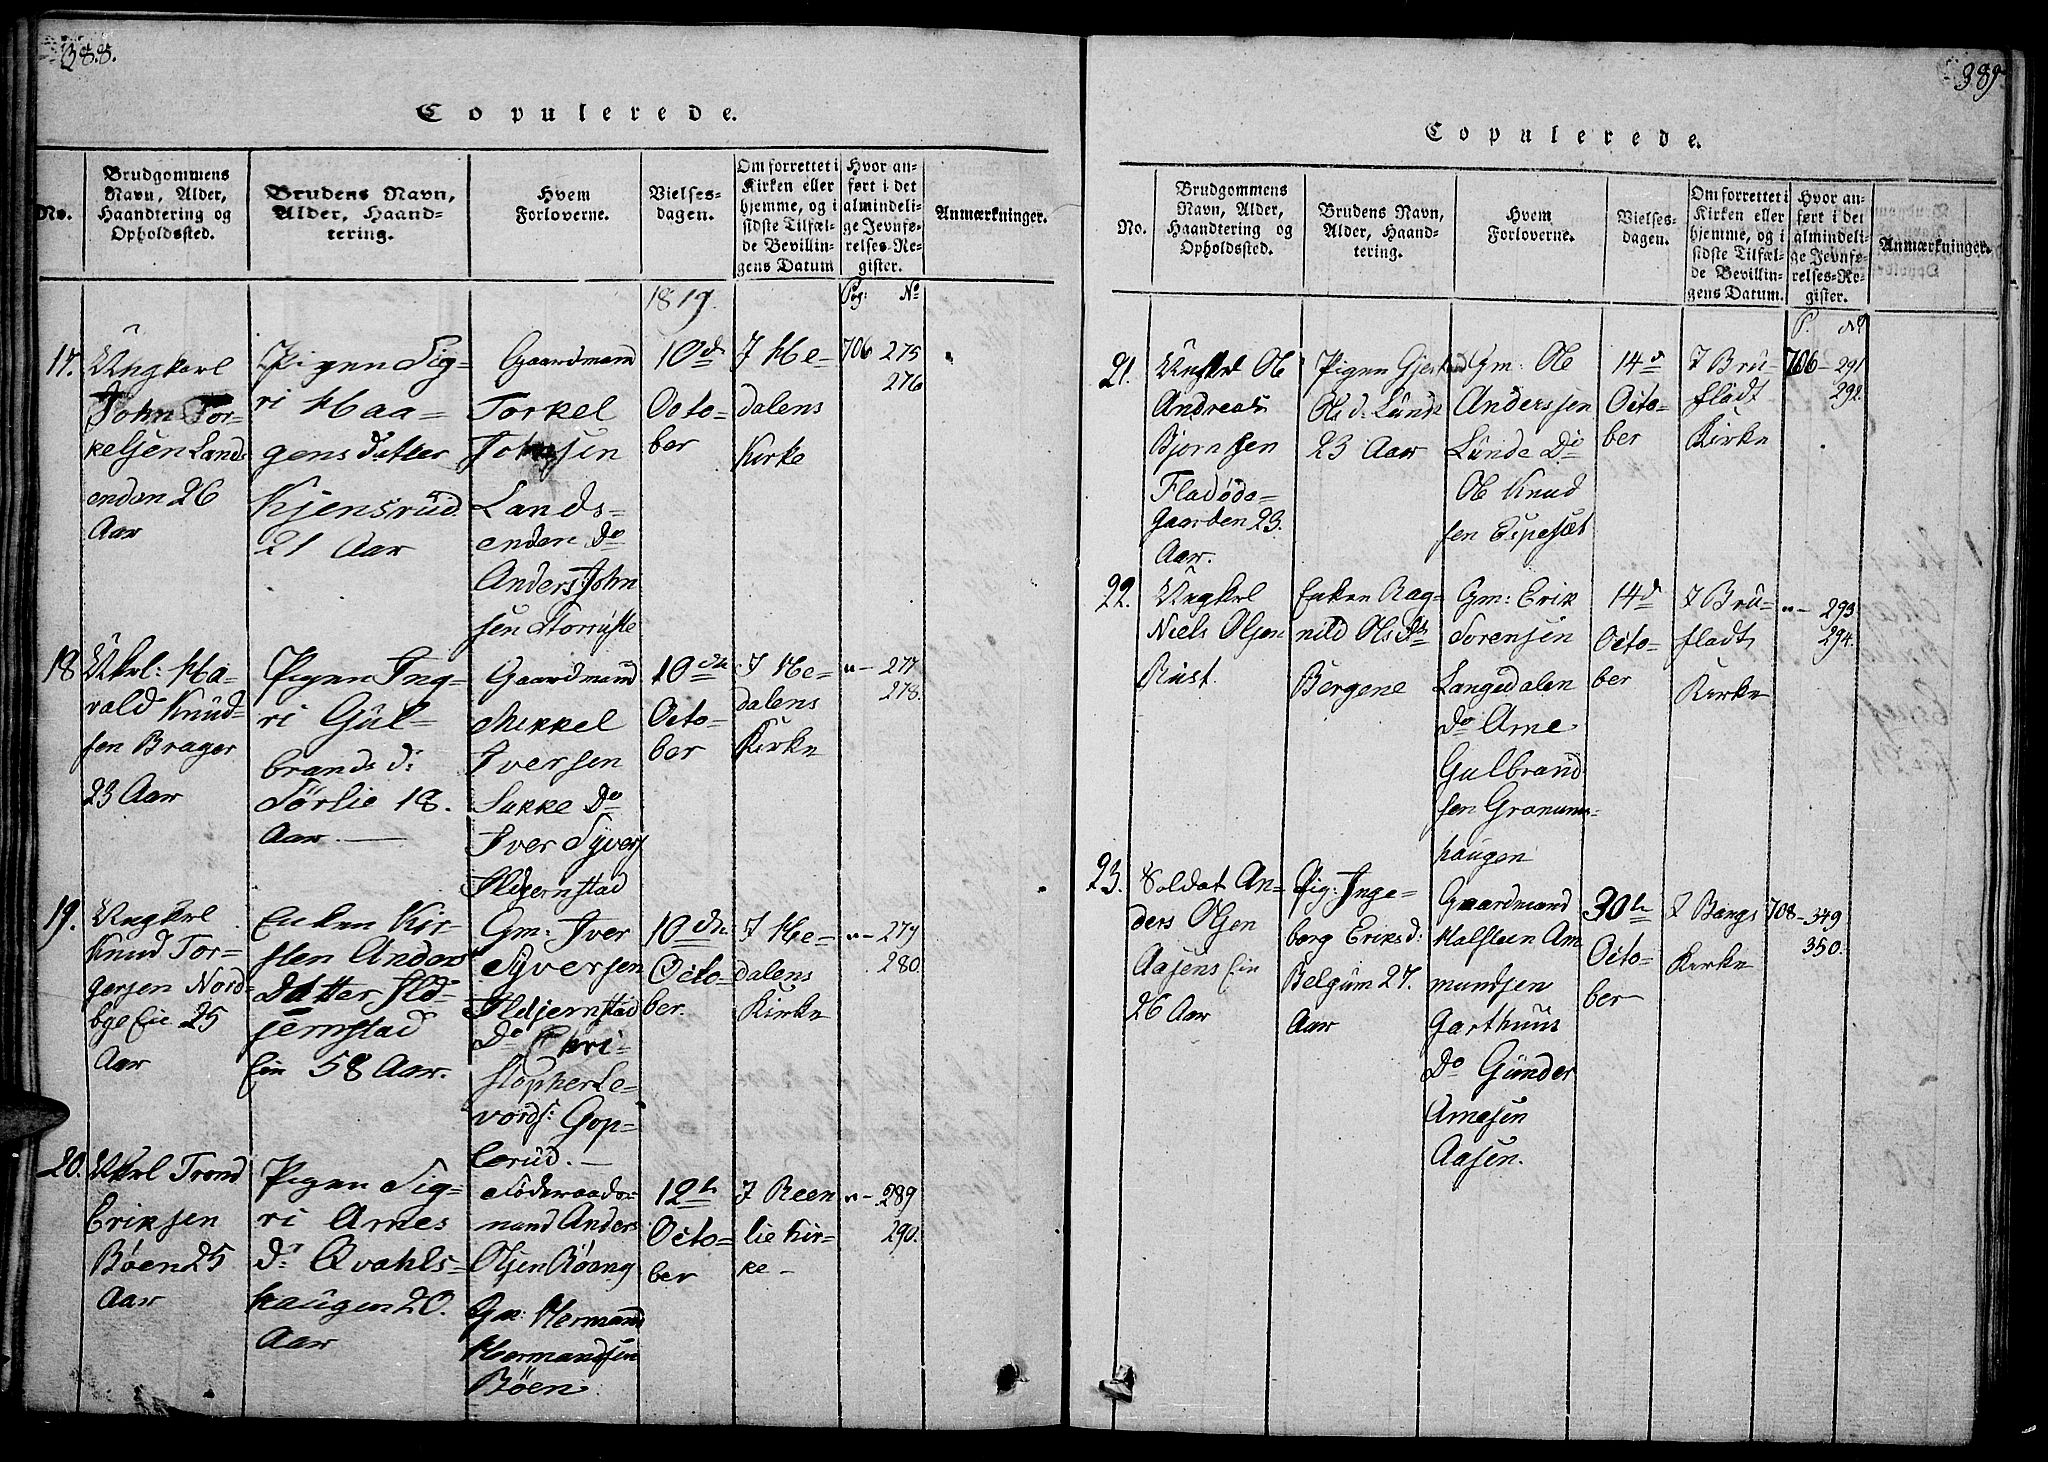 388.
Copulerede.
No.
Brudgommens
Navn, Alder,
Haandtering og
Opholdssted.
Brudens Navn,
Alder, Haand-
tering.
Hvem
Forloverne.
Vielses-
dagen.
Om forrettet i
Kirken eller
hjemme, og i
sidste Tilfæl-
de Bevillin-
gens Datum
Hvor an-
ført i det
almindeli-
ge Jevnfø-
relses-Re-
gister.
Anmærkninger.
1819.
Pag: No
17.
Ungkarl
John Tor-
kelsen Lands
enden 26
Aar
Pigen Sig-
ri Haa-
gensdatter
Kjensrud
21 Aar
Gaardmand
Torkel
Johnsen
Lands-
enden Do
Anders John
sen Storruste
10de
Octo-
ber
I He-
dalens
Kirke
706 275
276
18
Ukrl: Ha-
vald Knud-
sen Brager
23 Aar
Pigen Ing-
ri Gul-
brands d:
Sørlie 18.
Aar.
Gaardmand
Mikkel
Iversen
Sukke Do
Iver Syvers
Ildjernstad
10de
Octo-
ber
I He-
dalens
Kirke
"- 277
278.
19.
Ungkrl
Knud Tor-
gersen Nord-
bye Eie 25
Aar
Enken Kir-
sten Anders
Datter Ild-
jernstad
Eie 58 Aar.
Gm: Iver
Syversen
Ildjernstad
Do Chri-
stopher Se-
vords: Gop-
lerud.
10de
Octo-
ber.
I He-
dalens
Kirke
"- 279
280.
20.
Ukrl Trond
Eriksen
Bøen 25
Aar
Pigen Sig-
ri Arnes
d: Qvahls-
haugen 20.
Aar
Føderaads-
mand Anders
Olsen Røang
Gm: Hermand
Hermandsen
Bøen.
12te
Octo-
ber
I Reen
lie Kir-
ke -
"- 289
290.
389.
Copulerede.
No.
Brudgommens
Navn, Alder,
Haandtering og
Opholdssted.
Brudens Navn,
Alder, Haand-
tering.
Hvem
Forloverne.
Vielses-
dagen.
Om forrettet i
Kirken eller
hjemme, og i
sidste Tilfæl-
de Bevillin-
gens Datum.
Hvor an-
ført i det
almindeli-
ge Jevnfø-
relses-Re-
gister.
Anmærkninger.
P. No
21.
Ungkrl Ole
Andreas
Bjørnsen
Fladøde-
gaarden 23.
Aar.
Pigen
Ols d: Lunde
23 Aar
Gm: Ole
Anderssen
Lunde Do
Ole Knud
sen Espeset
14d
Octo-
ber
I Bru-
fladt
Kirke
706- 291
292.
22.
Ungkrl
Niels Olsen
Rust.
Enken Rag-
nild Ols Dtr
Bergene
Gm: Erik
Sorensen
Langedalen
Do Arne
Gulbrand
sen Granum-
haugen
14d
Octo-
ber
I Bru-
fladt
Kirke
"- 293
294.
23.
Soldat An-
ders Olsen
Aasens Eie
26 Aar
Pig: Inge-
borg Eriks d:
Belgum 27.
Aar
Gaardmand
Halsteen Am
mundsen
Garthuus
Do Gunder
Arnesen
Aasen.
30te
Octo-
ber
I Bangs
Kirke
708- 349
350.